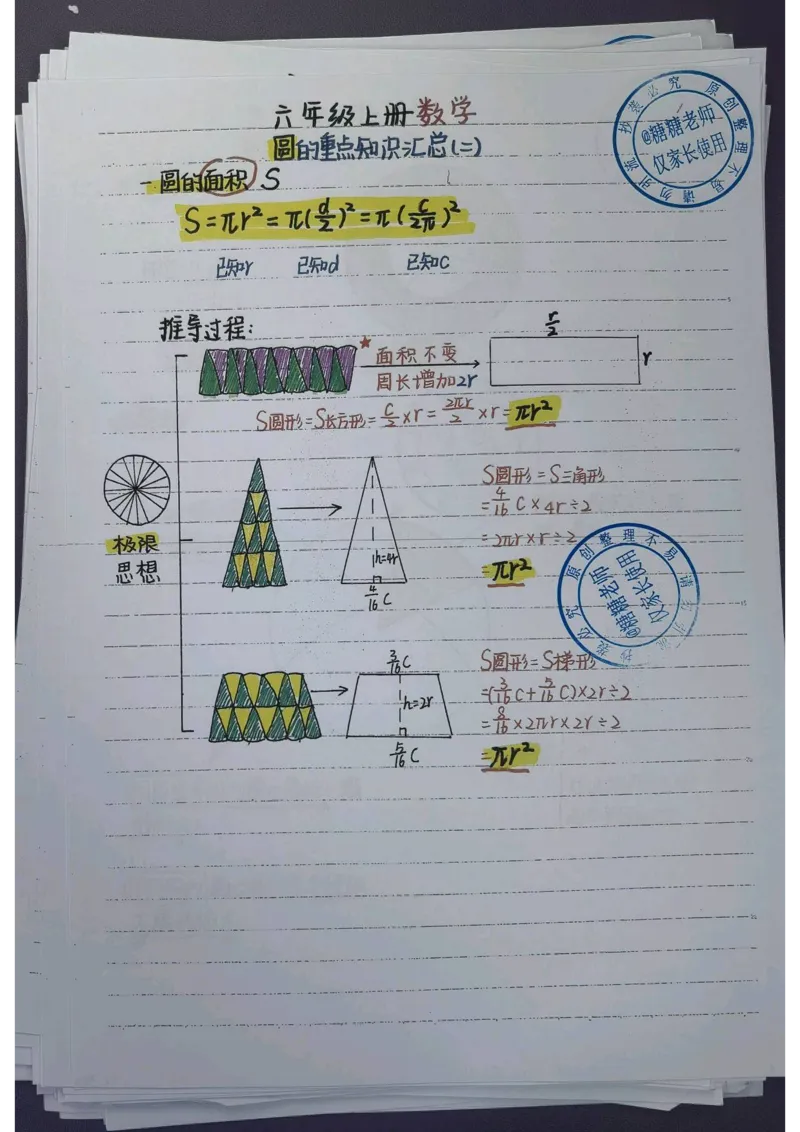 六年级上册数学
圆的重点知识汇总(二)
一圆的面积 S
S=πr²=π(d/2)²=π(C/2π)²
已知r 已知d 已知C
推导过程:
★面积不变
周长增加2r
r/2
r
S圆形=S长方形=C/2×r=2πr/2×r=πr²
极限
思想
h=4r
4/16 C
S圆形=S三角形
=4/16 C×4r÷2
=2πr×r÷2
=πr²
3/16 C
h=2r
5/16 C
S圆形=S梯形
=(3/16 C+5/16 C)×2r÷2
=8/16×2πr×2r÷2
=πr²
原创整理不易请勿引流抄袭必究
@糖糖老师
仅家长使用
原创整理不易请勿引流抄袭必究
@糖糖老师
仅家长使用